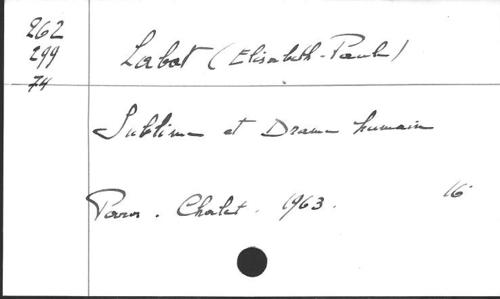 262
299
74
Labat (Elisabeth-Paule)
Sublime et Drame humain
Paris. Chalet. 1963. 16°